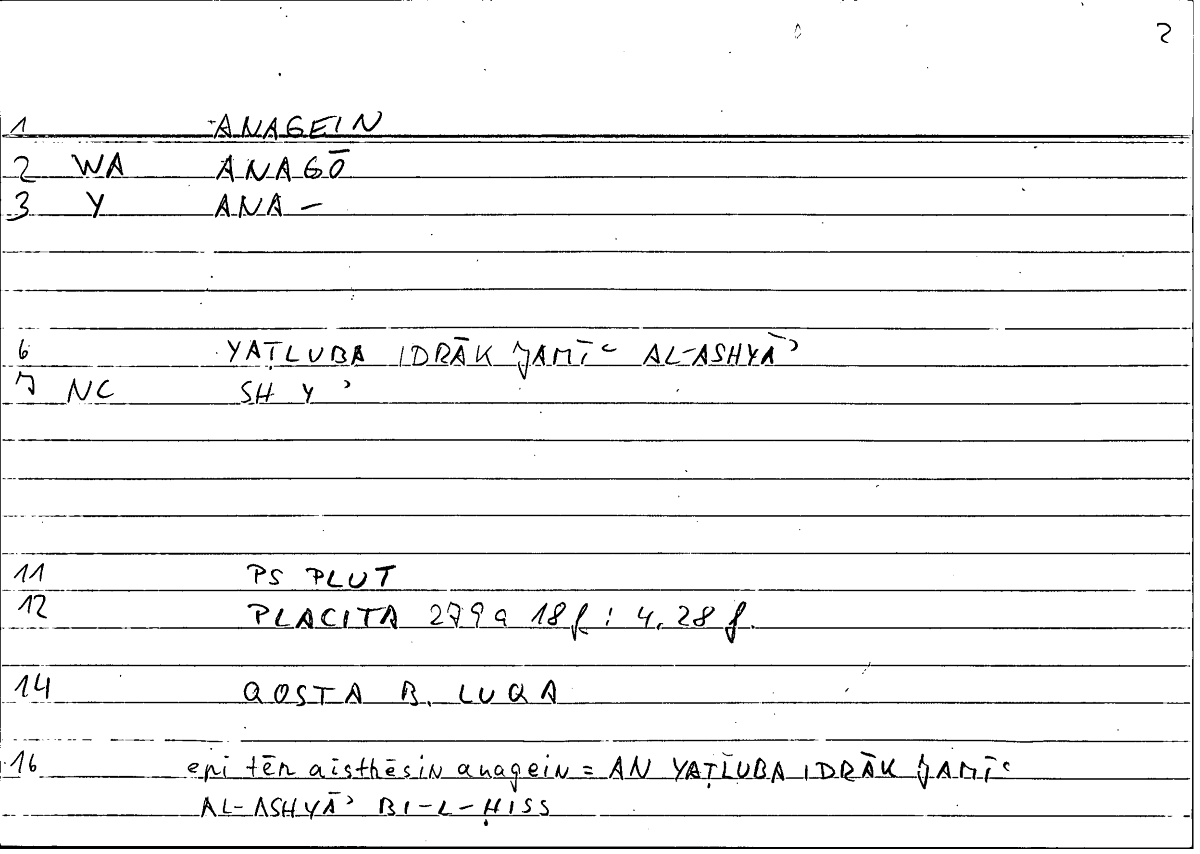 2
1 ANAGEIN
2 WA ANAGŌ
3 Y ANA –
6 YAṬLUBA IDRĀK JAMĪʿ AL-ASHYĀʾ
7 NC SH Y ʾ
11 PS PLUT
12 PLACITA 279a 18f : 4.28 f.
14 QOSTA B. LUQA
16 epi tēn aisthēsin anagein = AN YAṬLUBA IDRĀK JAMĪʿ
AL-ASHYĀʾ BI-L-ḤISS